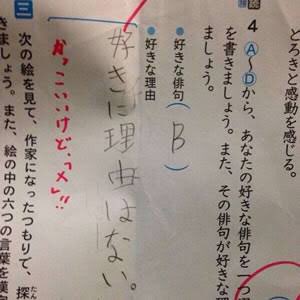 どろきと感動を感じる。
4 Ⓐ〜Ⓓから、あなたの好きな俳句を一つ選
を書きましょう。また、その俳句が好きな理
ましょう。
●好きな俳句（B）
●好きな理由
好きに理由はない。
かっこいいけど、ダメ!!
三 次の絵を見て、作家になったつもりで、探
きましょう。また、絵の中の六つの言葉を漢